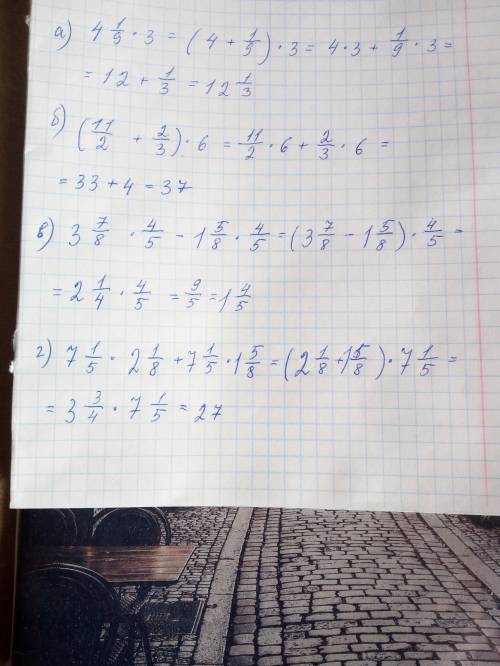 а) 4 1/9 · 3 = (4 + 1/9) · 3 = 4·3 + 1/9 · 3 =
= 12 + 1/3 = 12 1/3
б) (11/2 + 2/3) · 6 = 11/2 · 6 + 2/3 · 6 =
= 33 + 4 = 37
в) 3 7/8 · 4/5 − 1 5/8 · 4/5 = (3 7/8 − 1 5/8) · 4/5 =
= 2 1/4 · 4/5 = 9/5 = 1 4/5
г) 7 1/5 · 2 1/8 + 7 1/5 · 1 5/8 = (2 1/8 + 1 5/8) · 7 1/5 =
= 3 3/4 · 7 1/5 = 27